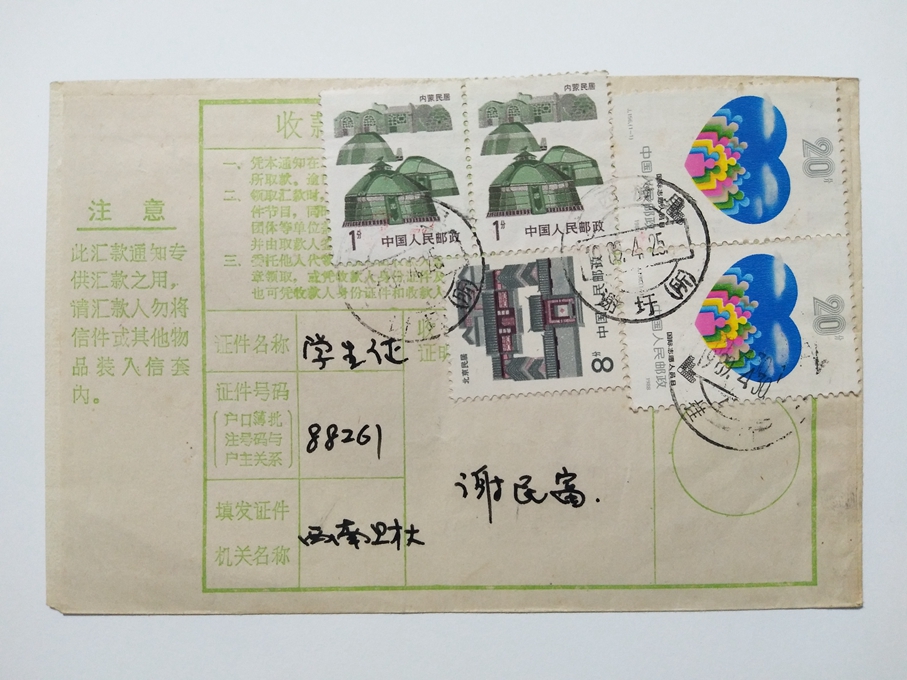 注意
此汇款通知专
供汇款之用，
请汇款人勿将
信件或其他物
品装入信套
内。
收款
一、凭本通知在
所取款。逾
二、领取汇款时
件节目，同时
团体等单位
并由取款人
三、委托他人代
章领取，或凭收款人身份证件及
也可凭收款人身份证件和收款人
内蒙民居
1分
中国人民邮政
内蒙民居
1分
中国人民邮政
北京民居
8分
中国人民邮政
20分
中国人民邮政
国际志愿人员日
20分
中国人民邮政
国际志愿人员日
1988
4.25
圩
(所)
(所)
1989.4.30
桂
证件名称
学生证
证件号码
(户口簿批
注号码与
户主关系)
88261
填发证件
机关名称
谢民富.